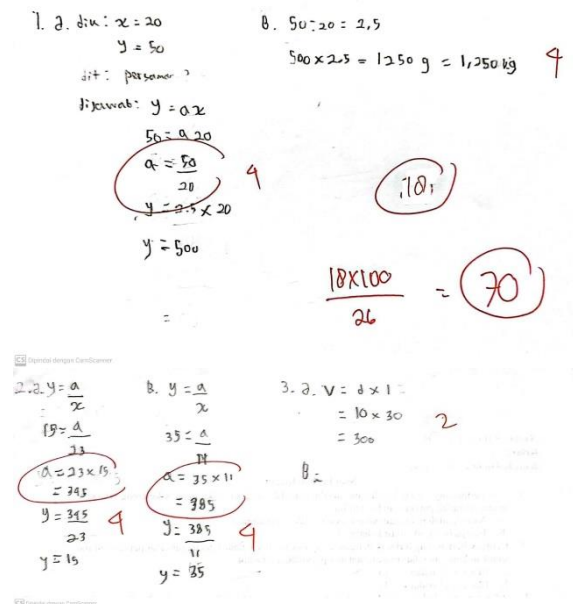 1. a. dik: x = 20
y = 50
dit: persamaan?
dijawab: y = ax
50 = a 20
a = 50
20
4
y = 2.5 x 20
y = 500
=
B. 50:20 = 2,5
500 x 2.5 = 1250 g = 1,250 kg 4
18
18x100
26
= 70
CS Dipindai dengan CamScanner
2. a. y = a
x
15 = a
23
a = 23 x 15
= 345
y = 345
23
4
y = 15
B. y = a
x
35 = a
11
a = 35 x 11
= 385
y = 385
11
4
y = 35
3. a. V = d x 1
= 10 x 30
= 300
2
B =
CS Dipindai dengan CamScanner